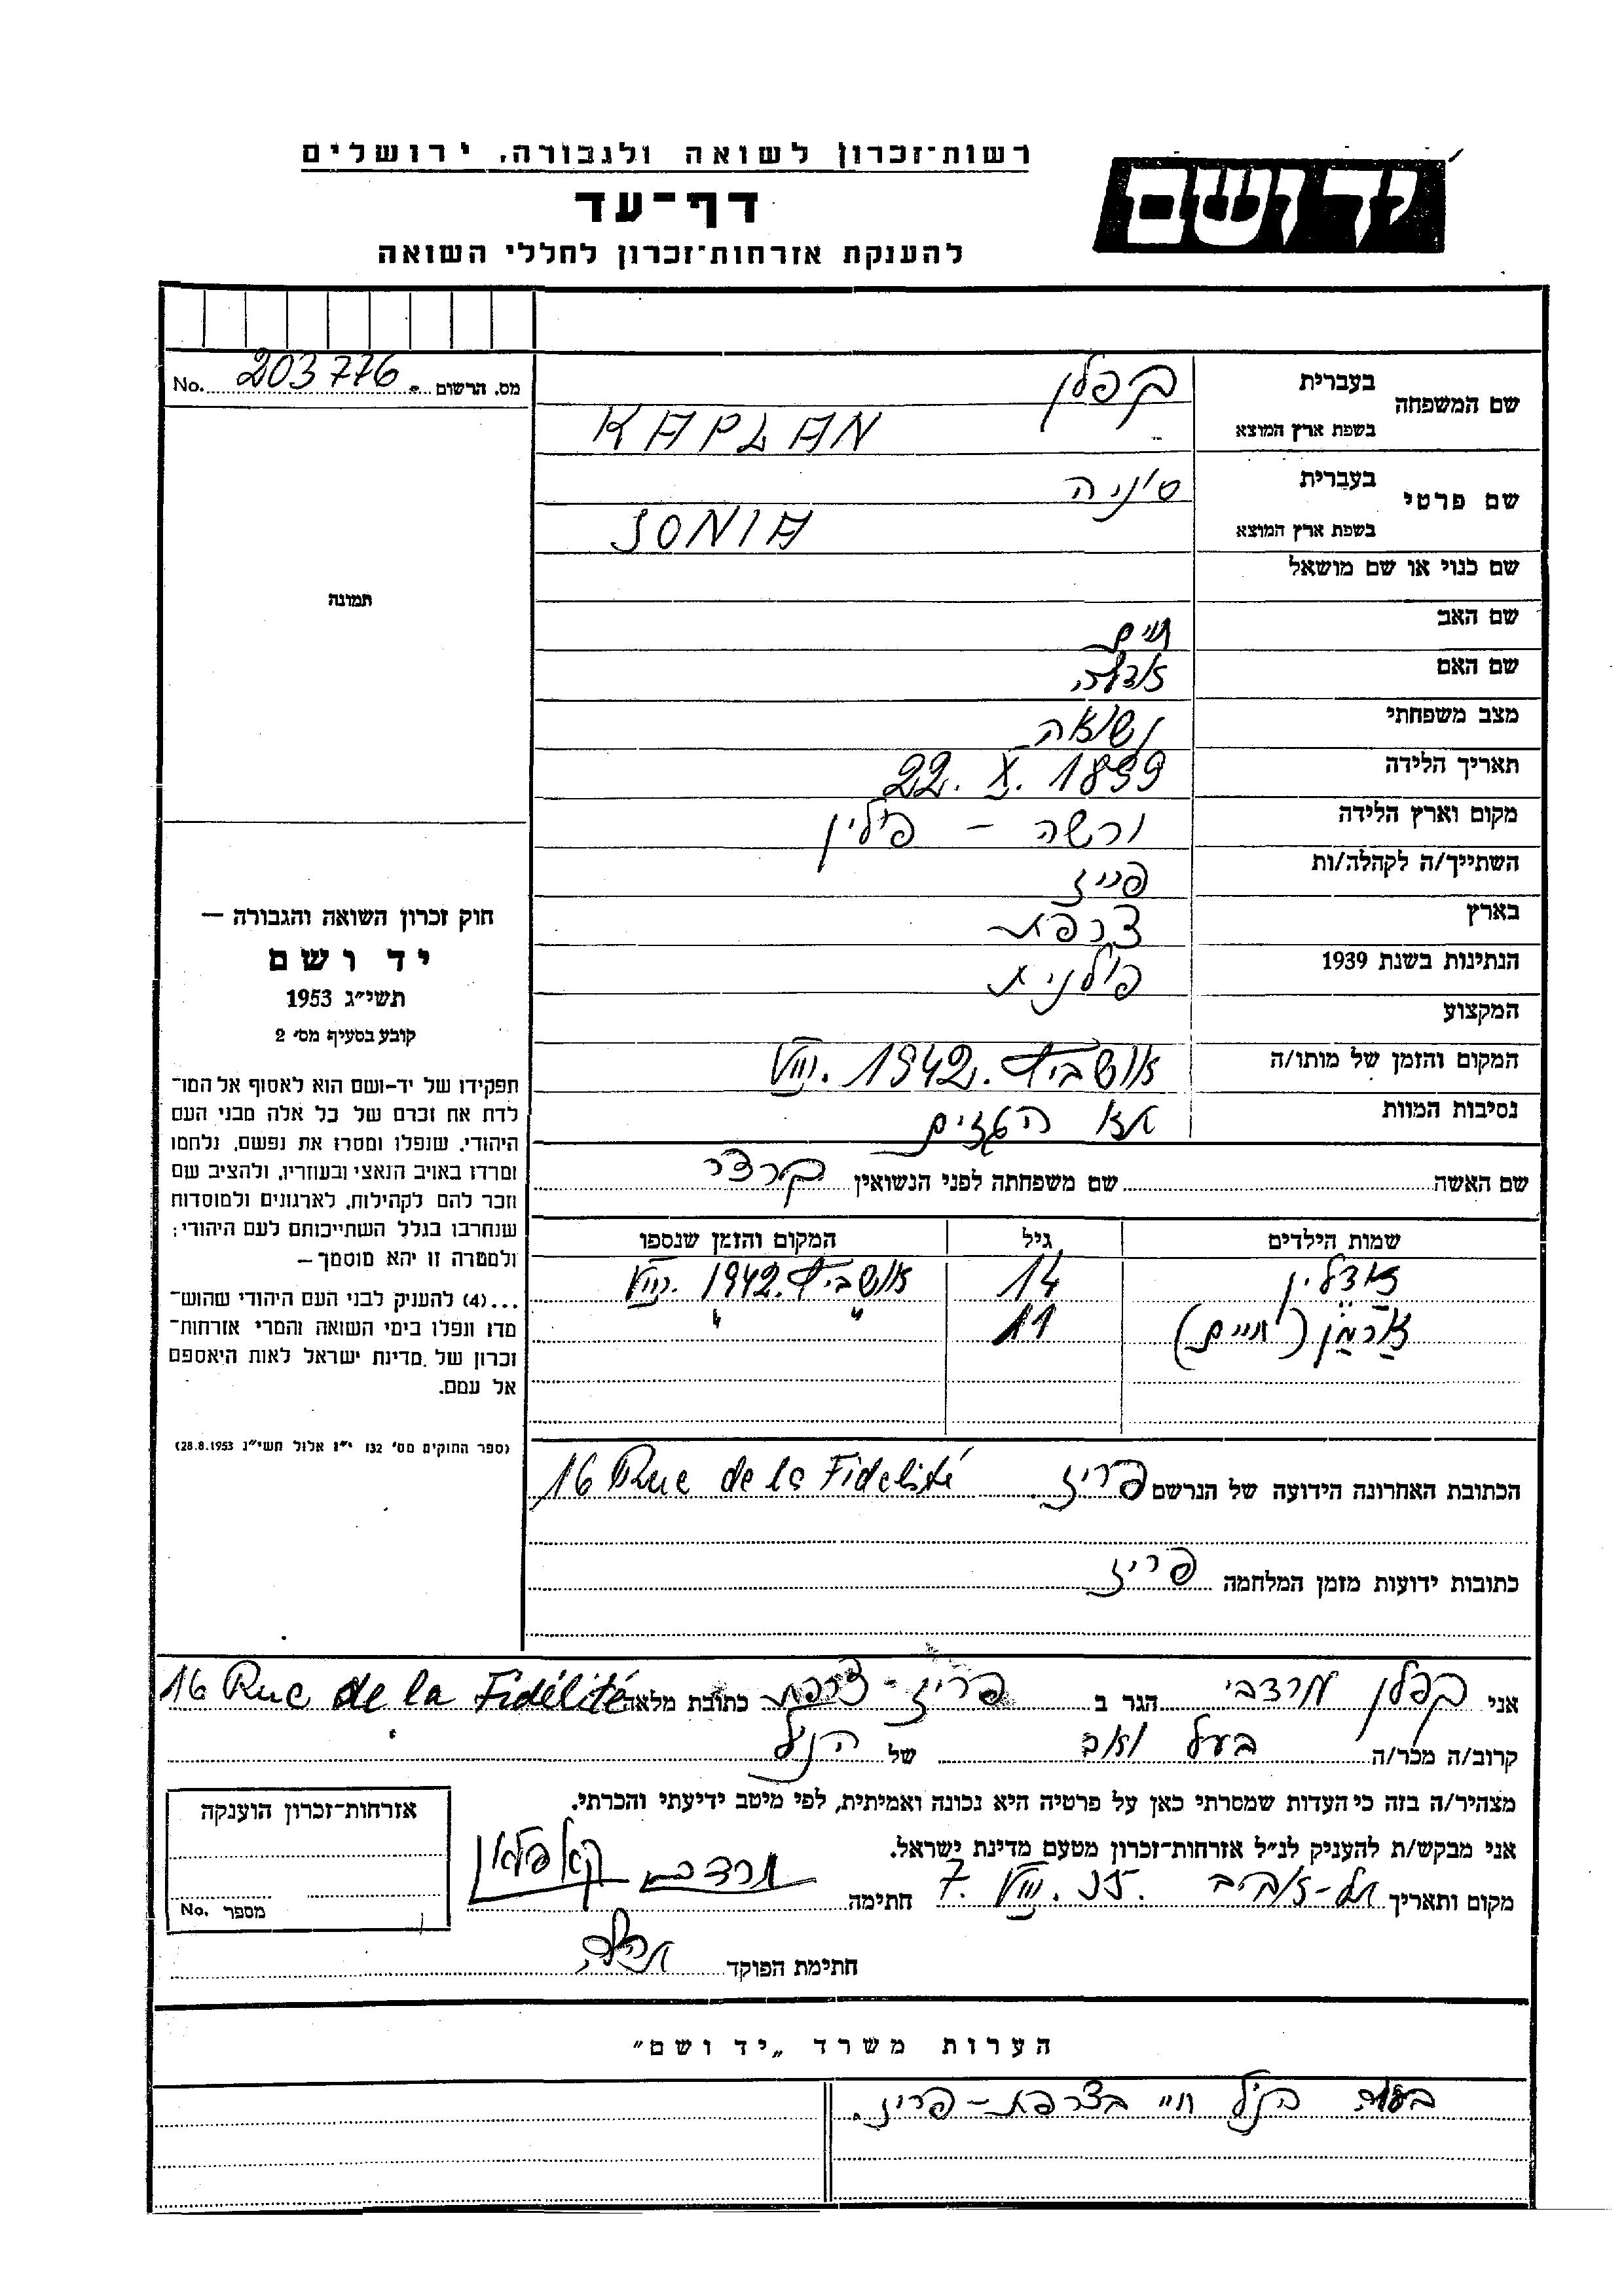 רשות־זכרון לשואה ולגבורה, ירושלים
יד ושם
דף־עד
להענקת אזרחות־זכרון לחללי השואה
מס. הרשום 203776 No.
שם המשפחה בעברית קפלן
בשפת ארץ המוצא KAPLAN
שם פרטי בעברית סוניה
בשפת ארץ המוצא SONIA
תמונה
שם כנוי או שם מושאל
שם האב חיים
שם האם
מצב משפחתי נשואה
תאריך הלידה 22. X. 1899
מקום וארץ הלידה ורשה - פולין
השתייך/ה לקהלה/ות פריז
בארץ צרפת
הנתינות בשנת 1939 פולנית
המקצוע
המקום והזמן של מותו/ה אושביץ. 1942. VIII
נסיבות המוות תא הגזים
שם האשה שם משפחתה לפני הנשואין
שמות הילדים גיל המקום והזמן שנספו
אדלין 14 אושביץ. 1942. VIII
ארמן (חיים) 11 " "
הכתובת האחרונה הידועה של הנרשם פריז 16 Rue de la Fidelité
כתובות ידועות מזמן המלחמה פריז
חוק זכרון השואה והגבורה —
יד ושם
תשי״ג 1953
קובע בסעיף מס׳ 2
תפקידו של יד-ושם הוא לאסוף אל המו־
לדת את זכרם של כל אלה מבני העם
היהודי, שנפלו ומסרו את נפשם, נלחמו
ומרדו באויב הנאצי ובעוזריו, ולהציב שם
וזכר להם לקהילות, לארגונים ולמוסדות
שנחרבו בגלל השתייכותם לעם היהודי;
ולמטרה זו יהא מוסמך —
...(4) להעניק לבני העם היהודי שהוש־
מדו ונפלו בימי השואה והמרי אזרחות־
זכרון של מדינת ישראל לאות היאספם
אל עמם.
(ספר החוקים מס׳ 132 י״ז אלול תשי״ג 28.8.1953)
אני קפלן מרדכי הגר ב פריז - צרפת כתובת מלאה 16 Rue de la Fidélité
קרוב/ה מכר/ה בעל ואב של הנ״ל
מצהיר/ה בזה כי העדות שמסרתי כאן על פרטיה היא נכונה ואמיתית, לפי מיטב ידיעתי והכרתי.
אני מבקש/ת להעניק לנ״ל אזרחות־זכרון מטעם מדינת ישראל.
מקום ותאריך תל-אביב 7. VIII. 55. חתימה מרדכי קאפלאן
חתימת הפוקד
אזרחות־זכרון הוענקה
מספר No.
הערות משרד „יד ושם״
בעלה הנ״ל חי בצרפת - פריז.